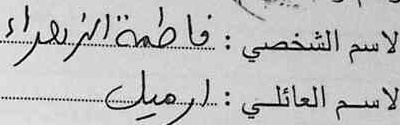 لاسم الشخصي : فاطمة الزهراء
لاسم العائلي : ارميل